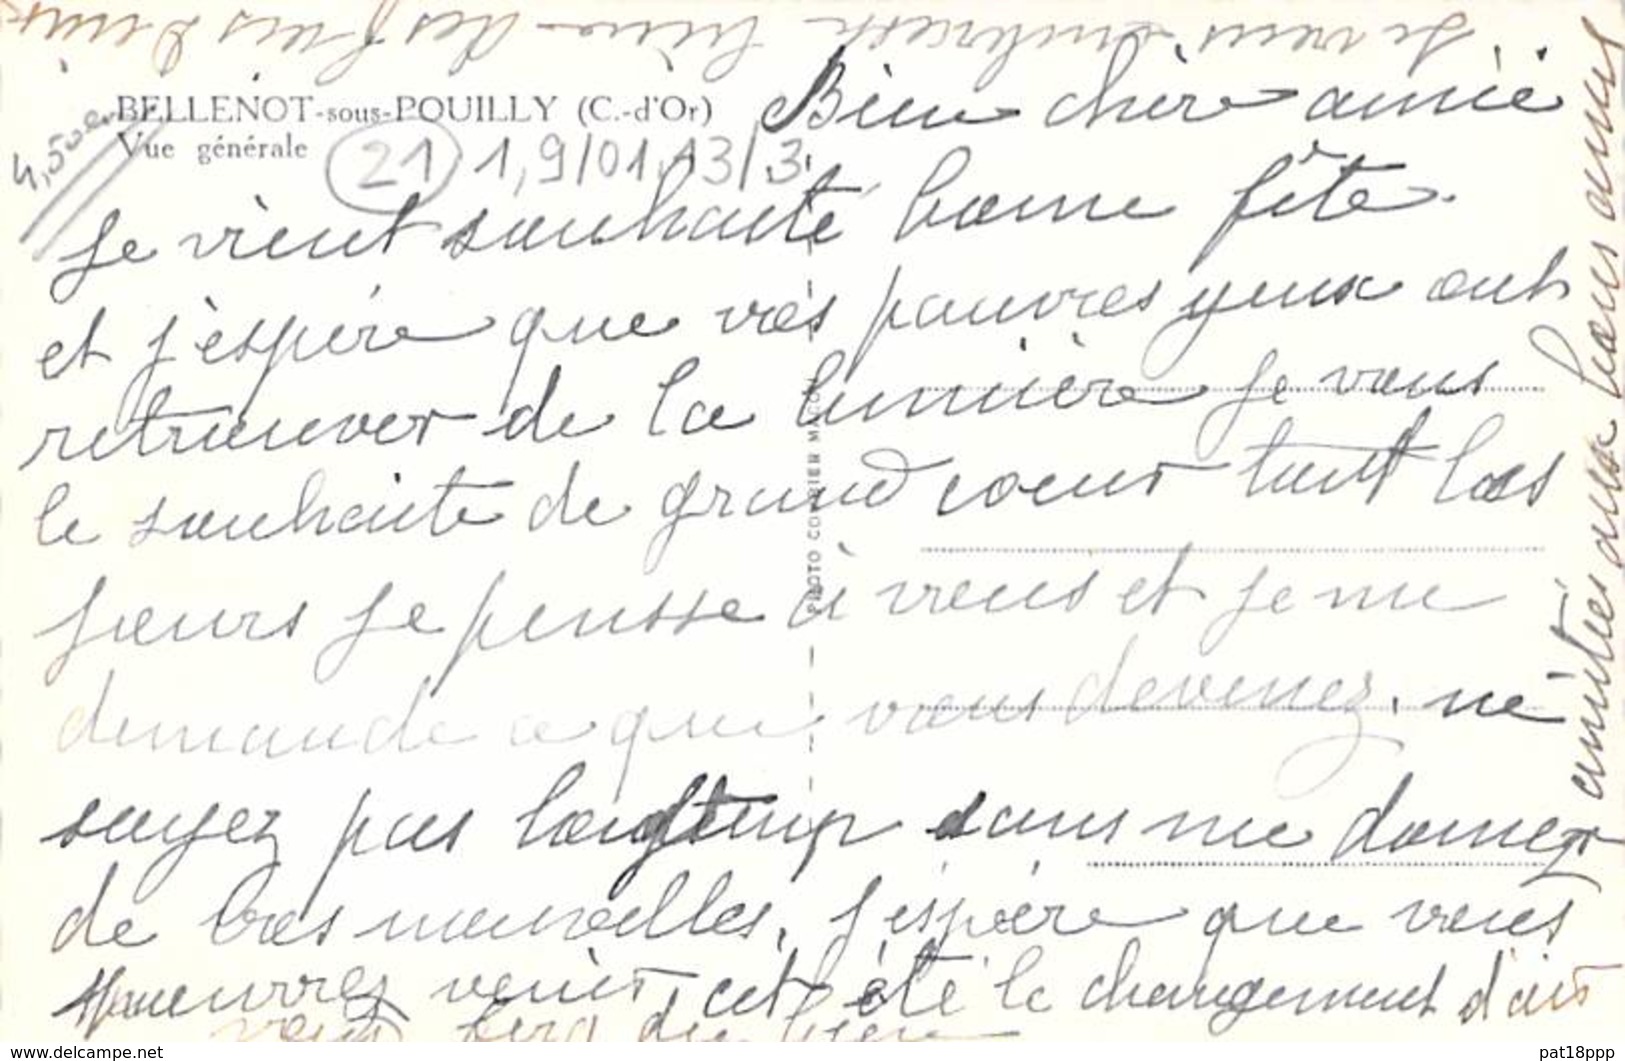 BELLENOT-sous-POUILLY (C.-d'Or)
Vue générale
4,50
21 1,9/01,13/3
PHOTO COMBIER MACON
Bien chèr amié
Je vient souhaité bonne fête
et j'éspére que vos pauvres yeux ont
retrouver de la lumière je vous
le souhaite de grand coeur tout les
jours je pensse à vous et je me
demande ce que vous devenez. ne
soyez pas longtemp sans me donner
de vos nouvelles, j'éspère que vous
pouvrez venir cet été le changement d'air
vous fera du bien
amitiés aux bons amis
Je vous embrasse bien
www.delcampe.net
pat18ppp